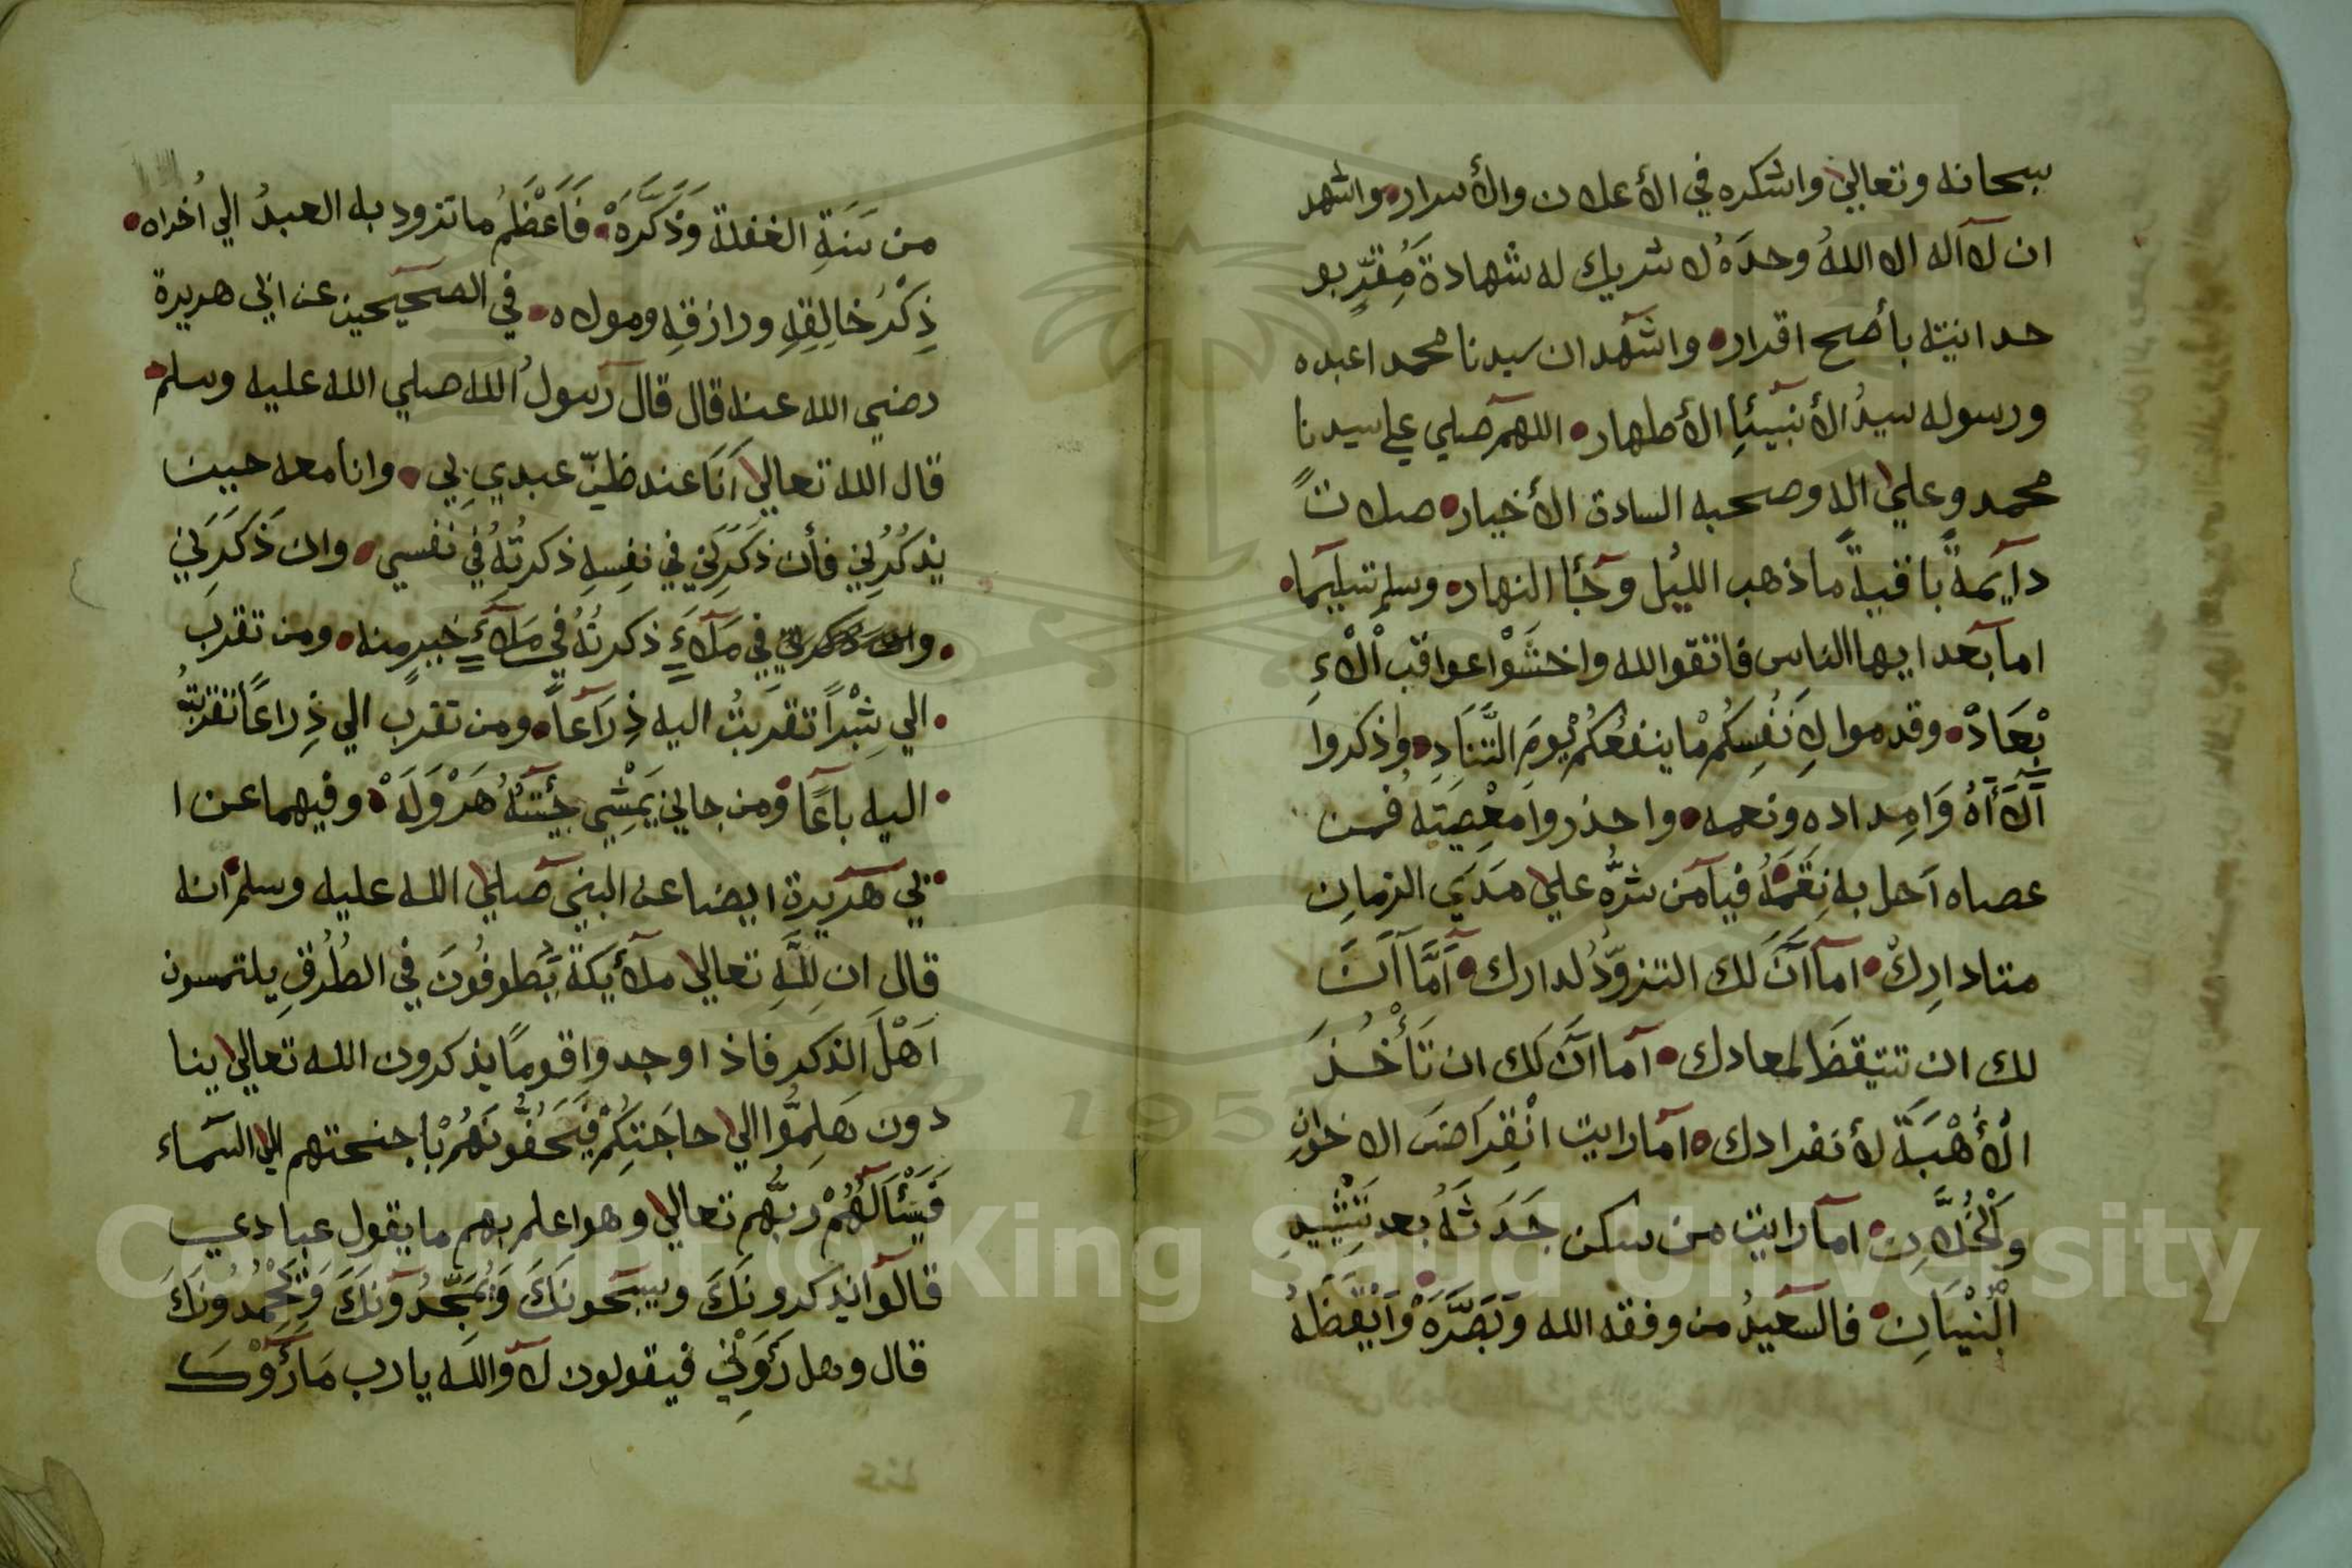 سبحانه وتعالي واشكره في الأعلان والأسرار واشهد
ان لآاله الا اللهُ وحدَهُ لا شريك له شهادة مُقرٍّ بو
حدانيته بأصح اقرار واشهد ان سيدنا محمد اعبده
ورسوله سيدُ الأنبيئاِ الأطهار اللهم صلي علي سيدنا
محمد وعلي اله وصحبه السادة الأخيار صلاتً
دايمةً باقيةً ماذهب الليل وجَأ النهار وسلم تسليما
اما بعد ايها الناس فاتقوا الله واخشَوْا عواقب اْلاءِ
بْعَادْ وقدموا لِاَنفُسِكُمْ ما ينفعُكُمْ يومَ التَّنَادِ واذكروا
آلآأهُ وَامِداده ونعمه واحذروا معْصِيَتِهُ فمن
عصاه آحل به نِقَمَهُ فيا من شرُّه علي مَدَي الزمانِ
متادارِكْ اما آنَ لك التزوّدُ لدارك اَمَّا آنَ
لك ان تتيقظَ لمعادك آما آنَ لك ان تَأْخُذَ
الْأُهْبَةَ لأنفرادك آما رايت انْقِرَاضَ الاخوانِ
وَلْخُلَّانِ اما رايت من سكن جَدَثَهُ بعد تَشْيِيدِ
الْبُنْيَانِ فالسعيدُ من وفقه الله وَبَصَّرَهْ وَاَيْقَظَهُ
من سَنَةِ الغفلة وَذَكَّرَهْ فَاَعْظَمُ ما تزود به العبدُ الي اُخراه
ذِكْرُ خالِقِهِ ورازقِهِ ومولاه في الصحيحين عن ابي هريرة
رضي الله عنه قال قال رسولُ الله صلي الله عليه وسلم
قال الله تعالي اَنَا عند ظنّ عبدي بي وانا معه حين
يذكُرُنِي فأن ذكَرَنِي في نفسِهِ ذكرتُهُ في نفسي وان ذَكَرَنِي
في مَلَاءٍ ذكرتُهُ في مَلَاءٍ خيرٍ منه ومن تقرب
الي شِبْراً تقربتُ اليه ذِرَاعاً ومن تقرب الي ذِراعًا تقربتُ
اليه باعًا ومن جاني يَمْشِي جِيْتُهُ هَرْوَلَهْ وفيهما عن ا
بي هريرة ايضا عن النبي صلي الله عليه وسلم انه
قال ان لِلَّهِ تعالي ملأيكةً يَطوفُونَ في الطُرُقِ يلتمسون
اَهْلَ الذكر فاذا وجدوا قومًا يذكرون الله تعالي ينا
دون هَلِمُّوا الي حاجَتِكُمْ فَيَحَفُّونَهُمْ باجنحتهم الي السماء
فَيَسْأَلَهُمْ ربُّهم تعالي وهو اعلم بهم ما يقول عبادي
قالوا يذكرونَكَ ويسبحونَكَ وَيُمَجِّدُونَكَ وَيَحْمِدُونَكَ
قال وهل رَؤَوْنِي فيقولون لا والله يارب مَارَؤَوْكَ